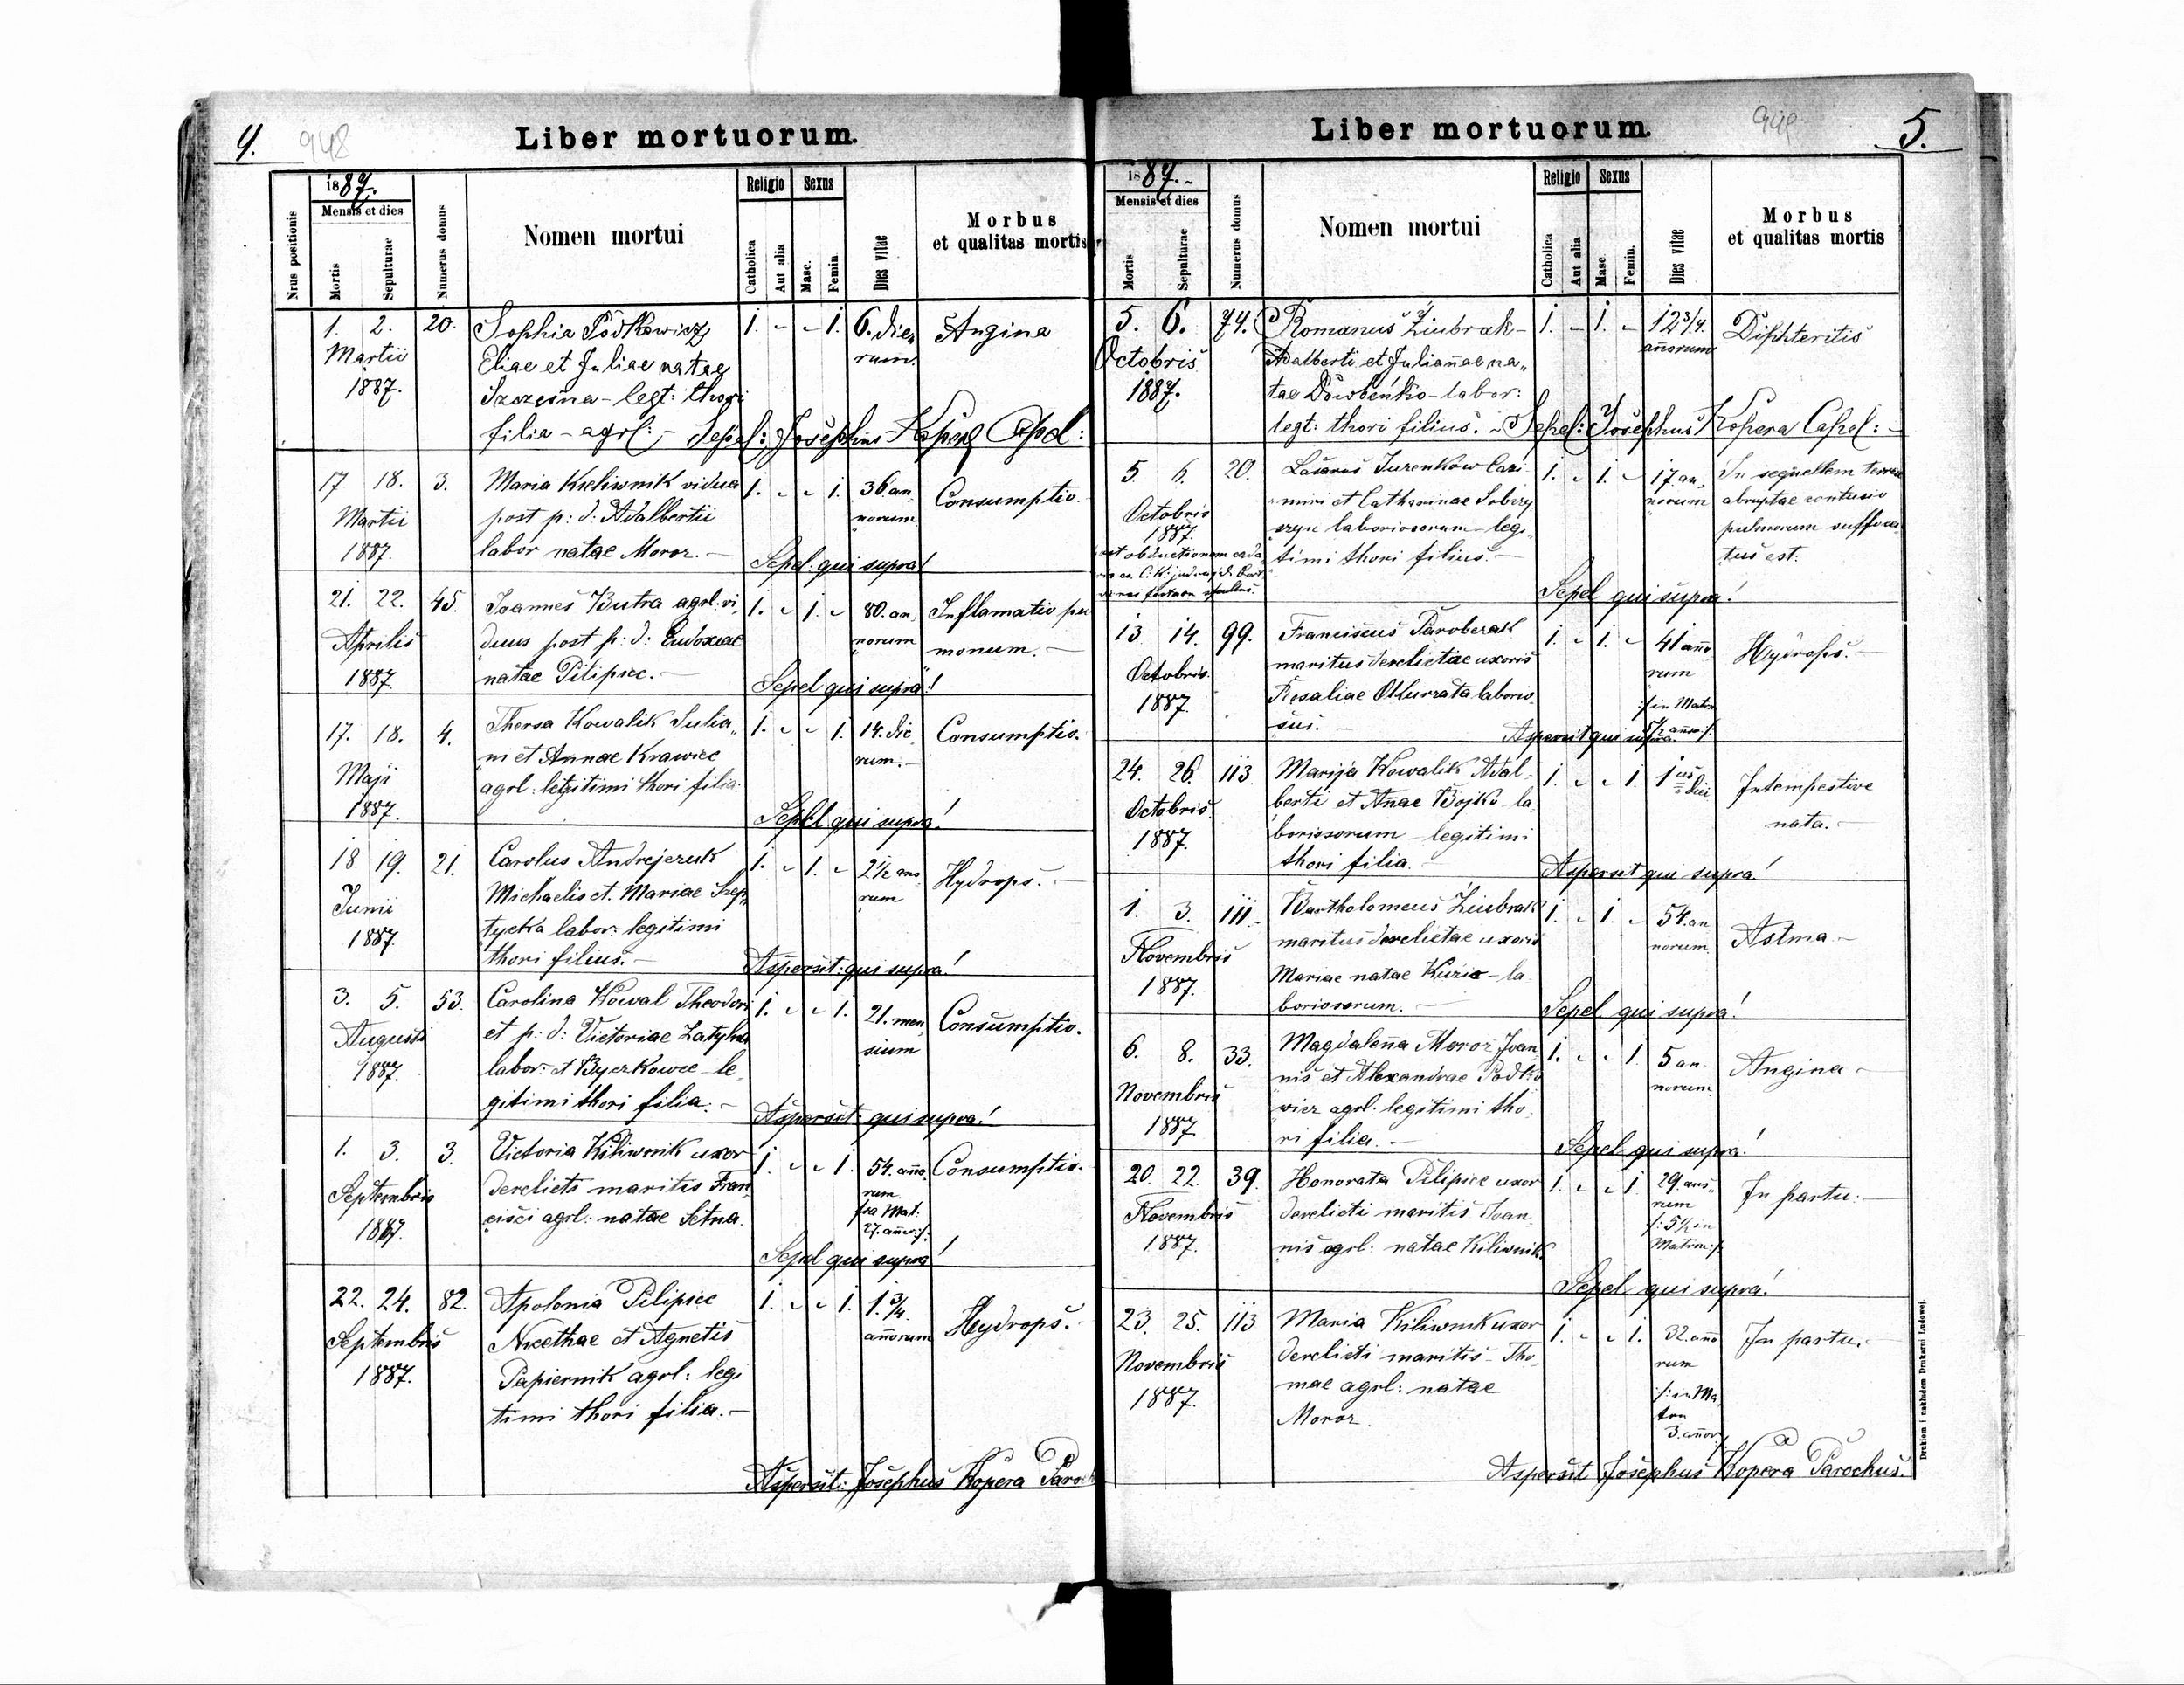 4.
948
Liber mortuorum.
Nrus positionis
1887.
Mensis et dies
Mortis
Sepulturae
Numerus domus
Nomen mortui
Religio
Catholica
Aut alia
Sexus
Masc.
Femin.
Dies vitae
Morbus
et qualitas mortis
1. 2. 20. Sophia Podkowicz 1. - - 1. 6. die Angina
Martii Eliae et Juliae natae rum.
1887. Szczesna - legt: thori
filia - agrl: - Sepel: Josephus Kopera Capel:
17 18. 3. Maria Kiliwnik vidua 1. - - 1. 36. an Consumptio.
Martii post p: d: Adalbertii norum
1887. labor natae Moroz. -
Sepel: qui supra!
21. 22. 45. Joannes Butra agrl: vi 1. - 1. - 80. an Inflamatio pu
Aprilis duus post p: d: Eudoxiae norum monum. -
1887. natae Pilipiec. -
Sepel qui supra!
17. 18. 4. Thersa Kowalik Julia 1. - - 1. 14. die Consumptio.
Maji ni et Annae Krawiec rum. -
1887. agrl: legitimi thori filia:
Sepel qui supra!
18. 19. 21. Carolus Andrejczuk 1. - 1. - 2 1/2 ano Hydrops. -
Junii Michaelis et. Mariae Szep rum
1887. tycka labor: legitimi
thori filius. -
Aspersit: qui supra!
3. 5. 53. Carolina Kowal Theodori 1. - - 1. 21. men Consumptio.
Augusti et p: d: Victoriae sium
1887. labor: et le
gitimi thori filia: -
Aspersit: qui supra!
1. 3. 3. Victoria Kiliwnik uxor 1. - - 1. 54. anno Consumptio.
Septembris derelicts maritis Fran rum.
1887. cisci agrl: natae Setna. Mat:
27. annor:/.
Sepel qui supra!
22. 24. 82. Apolonia Pilipiec 1. - - 1. 1. 3/4 Hydrops. -
Septembris Nicethae et Agnetis annorum
1887. Papiernik agrl: legi
timi thori filia. -
Aspersit: Josephus Kopera Paroch
5.
949
Liber mortuorum.
1887.
Mensis et dies
Mortis
Sepulturae
Numerus domus
Nomen mortui
Religio
Catholica
Aut alia
Sexus
Masc.
Femin.
Dies vitae
Morbus
et qualitas mortis
5. 6. 74. Romanus Ziubrak - 1. - 1. - 12 3/4. Diphteritis
Octobris Adalberti et Juliannae na annorum
1887. tae - labor:
legt: thori filius. - Sepel: Josephus Kopera Capel: -
5 6. 20. Lazarus Jurenkow Cazi 1. - 1. - 17 an In sequellam terrae
Octobris miri et Catharinae norum abruptae contusio
1887. laboriosorum - legi pulmorum suffoca
post obductionem timi thori filius. - tus est:
Sepel qui supra!
13. 14. 99. Franciscus Paroberak 1. - 1. - 41 anno Hydrops. -
Octobris maritus derelictae uxoris rum
1887. Rosaliae laborio /:in Matri
sus. - 5 1/2 anno:/.
Aspersit qui supra.
24. 26. 113. Marija Kowalik Adal 1. - - 1. 1 us dici Intempestive
Octobris berti et Anae Bojko - la nata. -
1887. boriosorum - legitimi
thori filia. -
Aspersit qui supra!
1. 3. 111. Bartholomeus Ziubrak 1. - 1. - 54. an Astma -
Novembris maritus derelictae uxoris norum
1887. Mariae natae - la
boriosorum. -
Sepel qui supra!
6. 8. 33. Magdalena Moroz Joan 1. - - 1. 5. an Angina. -
Novembris nis et Alexandrae Podko norum.
1887 wicz agrl: legitimi tho
ri filia. -
Sepel qui supra!
20. 22. 39. Honorata Pilipiec uxor 1. - - 1. 29. ano In partu. -
Novembris derelicti maritis Joan rum
1887. nis agrl: natae Kiliwnik. /: 5 1/2 in
Matrim:/.
Sepel qui supra!
23. 25. 113 Maria Kiliwnik uxor 1. - - 1. 32. anno In partu. -
Novembris derelicti maritis - Tho rum
1887. mae agrl: natae /: in Ma
Moroz. tri
3. annor:/
Aspersit Josephus Kopera Parochus.
Drukiem i nakładem Drukarni Ludowej.